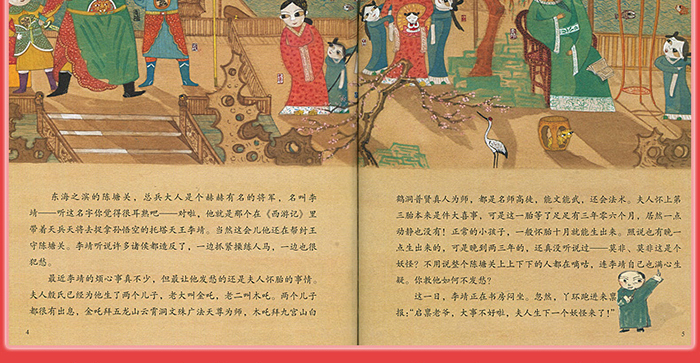 东海之滨的陈塘关，总兵大人是个赫赫有名的将军，名叫李
靖——听这名字你觉得很耳熟吧——对啦，他就是那个在《西游记》里
带着天兵天将去捉拿孙悟空的托塔天王李靖。当然这会儿他还在替纣王
守陈塘关。李靖听说许多诸侯都造反了，一边抓紧操练人马，一边也很
犯愁。
最近李靖的烦心事真不少，但最让他发愁的还是夫人怀胎的事情。
夫人殷氏已经为他生了两个儿子，老大叫金吒，老二叫木吒。两个儿子
都很有出息，金吒拜五龙山云霄洞文殊广法天尊为师，木吒拜九宫山白
4
鹤洞普贤真人为师，都是名师高徒，能文能武，还会法术。夫人怀上第
三胎本来是件大喜事，可是这一胎等了足足有三年零六个月，居然一点
动静也没有！正常的小孩子，一般怀胎十月就能生出来。照说也有晚一
点生出来的，可是晚到两三年的，还真没听说过——莫非、莫非这是个
妖怪？不用说整个陈塘关上上下下的人都在嘀咕，连李靖自己也满心生
疑。你教他如何不发愁？
这一日，李靖正在书房闷坐。忽然，丫环跑进来禀
报：“启禀老爷，大事不好啦，夫人生下一个妖怪来了！”
5